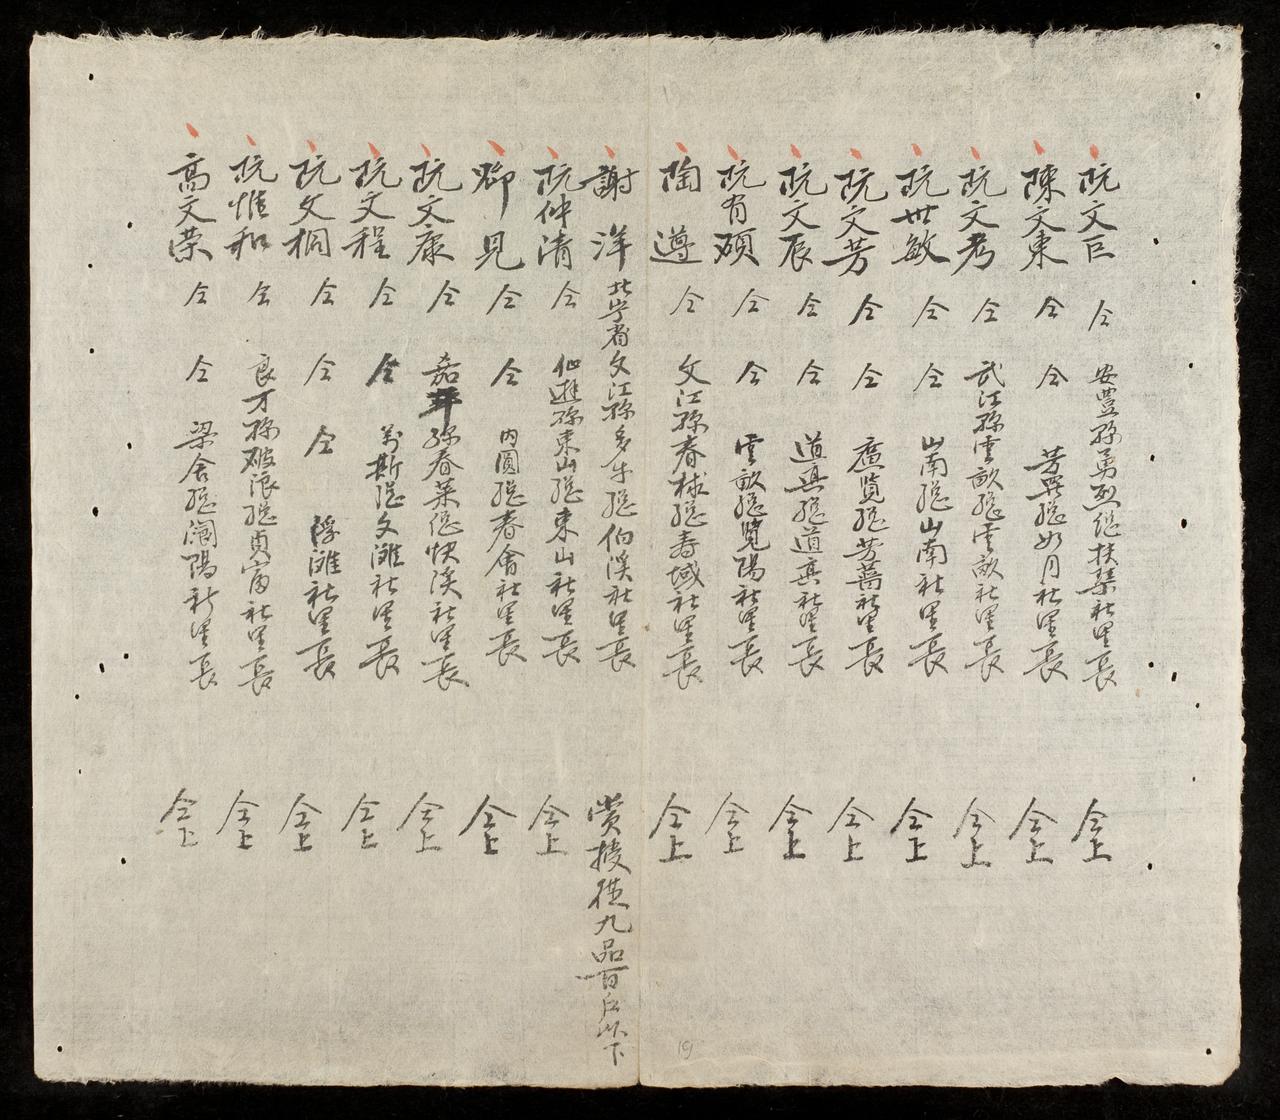 阮文巨 仝 安豊縣勇烈總扶𣒱社里長 仝上
陳文東 仝 仝 芳蘭總如月社里長 仝上
阮文考 仝 武江縣雲畝總雲畝社里長 仝上
阮世敏 仝 仝 山南總山南社里長 仝上
阮文芳 仝 仝 廣覽總芳蔄社里長 仝上
阮文辰 仝 仝 道真總道真社里長 仝上
阮有碩 仝 仝 雲畝總覽陽社里長 仝上
陶遵 仝 文江縣春梂總壽域社里長 仝上
謝洋 北宁省文江縣多牛總伯溪社里長 賞授從九品百戶以下
阮仲清 仝 仙遊縣東山總東山社里長 仝上
鄧見 仝 仝 內圓總春會社里長 仝上
阮文康 仝 嘉平縣春萊總快溪社里長 仝上
阮文程 仝 仝 萬斯總文灘社里長 仝上
阮文桐 仝 仝 仝 浮灘社里長 仝上
阮惟和 仝 良才縣破浪總貞富社里長 仝上
高文荣 仝 仝 梁舍總閬陽社里長 仝上
19